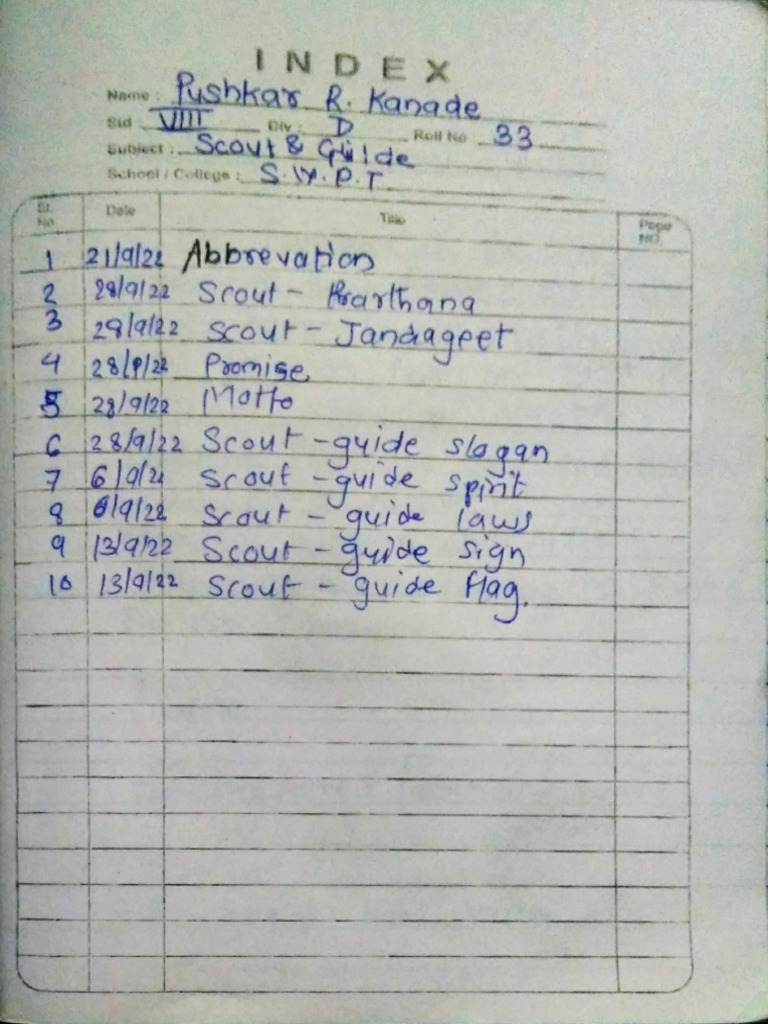 INDEX
Name : Pushkar R. Kanade
Std VIII Div : D Roll No 33
Subject : Scout & Guide
School / College : S.V.P.T
Sr. No Date Title Page NO
1 21/9/22 Abbrevation
2 28/9/22 Scout - Prarthana
3 28/9/22 Scout - Jandageet
4 28/9/22 Promise
5 28/9/22 Motto
6 28/9/22 Scout - guide slogan
7 6/9/22 Scout - guide spirit
8 6/9/22 Scout - guide laws
9 13/9/22 Scout - guide sign
10 13/9/22 Scout - guide flag.